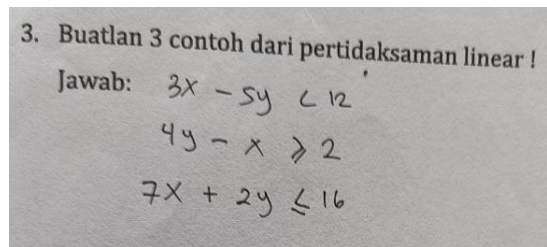 3. Buatlan 3 contoh dari pertidaksaman linear !
Jawab: 3x - 5y < 12
4y - x ⩾ 2
7x + 2y ≤ 16